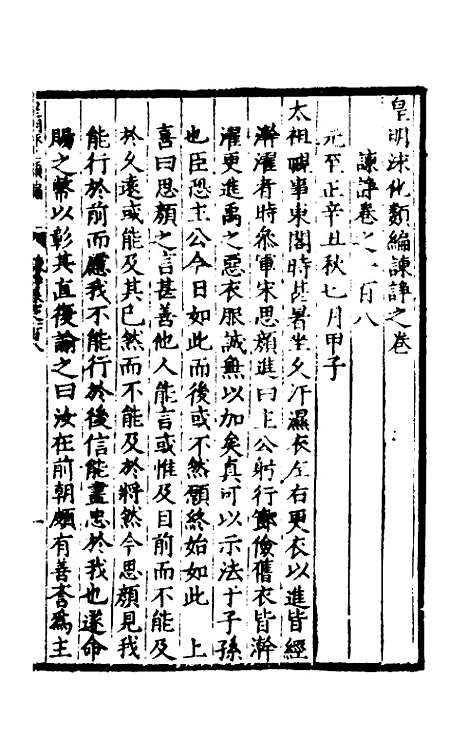 皇明泳化類編諫諍之卷
諫諍卷之一百八
元至正辛丑秋七月甲子
太祖嘗事東閣時甚暑坐久汗濕衣左右更衣以進皆經
澣濯者時叅軍宋思顏進曰主公躬行節儉舊衣皆澣
濯更進禹之惡衣服誠無以加矣真可以示法于子孫
也臣恐主公今日如此而後或不然願終始如此 上
喜曰思顏之言甚善他人能言或惟及目前而不能及
於久遠或能及其已然而不能及於將然今思顏見我
能行於前而慮我不能行於後信能盡忠於我也遂命
賜之幣以彰其直復諭之曰汝在前朝頗有善者為主